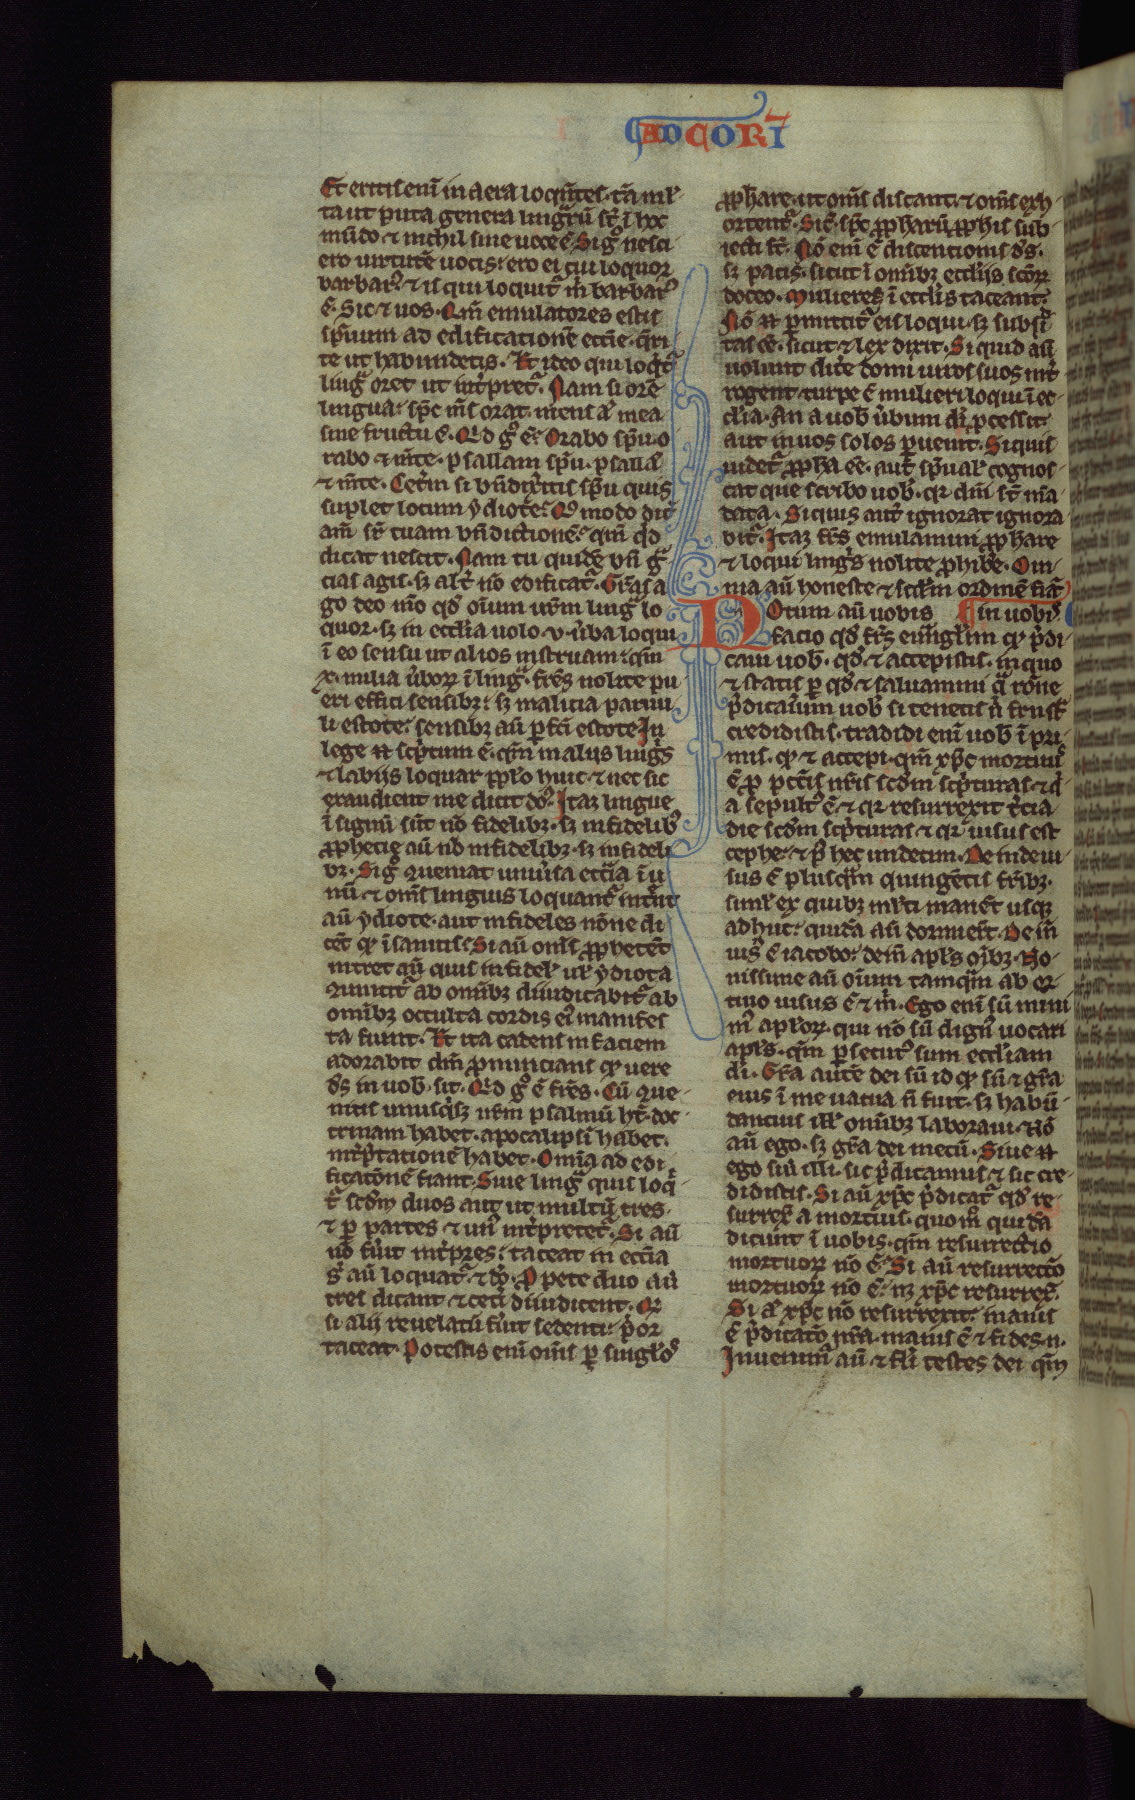 AD COR I
Et eritis eni̅ in aera loque̅tes. ta̅ ml̓
ta ut puta genera lingⷶru̅ st̅ i̅ hoc
mu̅do ⁊ nichil sine uoce e̅. Sigͦ nesci
ero uirtute̅ uocis: ero ei cui loquor
barbarꝰ ⁊ is qui loquit᷑ m̅ barbarꝰ
e̅. Sic ⁊ uos. Qm̅ emulatores estis
spi̅tuum ad edificatione̅ eccl̅ie. q̅ri
te ut habundetis. Et ideo qui loqⁱt᷑
lingⷶ oret ut int̓pret᷑. Nam si ore̅
lingua: spc̅ ms̅ orat. mens at̅ mea
sine fructu e̅. Qͥd gͦ e̅: Orabo spu̅. o
rabo ⁊ m̅te. psallam spu̅. psalla̅
⁊ m̅te. Cet̓m si bn̅dix̓itis spu̅ quis
suplet locum ydiote: Qͦmodo dic̅
am̅ sr̅ tuam bn̅dictione̅: qm̅ qͥd
dicat nescit. Nam tu quide̅ bn̅ gr̅
cias agis. sꝫ alt̓ no̅ edificat᷑. Gr̅as a
go deo m̅o qd̓ oi̅um ur̅m lingⷶ lo
quor. sꝫ in eccl̓ia uolo .v. u̓ba loqui
i̅ eo sensu ut alios instruam: qm̅
x. milia u̓boꝝ i̅ lingⷶ. fr̅s nolite pu
eri effici sensibꝫ: sꝫ malicia paruu
li estote: sensibꝫ au̅ ꝑfc̅i estote In
lege n̅ sc̓ptum e̅. qm̅ in alijs lingⁱs
⁊ labiis loquar pp̓lo huic. ⁊ nec sic
exaudient me dicit ds̅. Itaꝫ lingue
i̅ signu̅ su̅t no̅ fidelibꝫ. sꝫ infidelibꝰ
ꝓphecie au̅ no̅ infidelibꝫ. sꝫ infideli
bꝫ. Sigͦ queniat uniu̓sa eccl̅ia i̅ u
nu̅ ⁊ oms̅ linguis loquant᷑ int̓nt
au̅ ydiote. aut infideles no̅ne di
ce̅t qꝫ i̅sanitis: Si au̅ oms̅ ꝓphete̅t
intret au̅ quis infidel̓ ul̓ ydiota
quincit᷑ ab omibꝫ diiudicabit᷑ ab
omibꝫ occulta cordis ei̓ manifes
ta fiunt. Et ita cadens in faciem
adorabit dm̅ ꝓnuncians qꝫ uere
ds̅ in uob̓. sit. Qͥd gͦ e̅ fr̅s. Cu̅ que
nitis unusqⁱsꝫ ur̅m psalmu̅ ht̅. doc
trinam habet. apocalipsi̅ habet.
int̓p̓tatione̅ habet. Omⷤia ad edi
ficato̅ne̅ fiant. Siue lingⷶ quis loqⁱ
t᷑ scd̅m duos aut ut multu̅ tres.
⁊ ꝑ partes ⁊ unꝰ int̓pretet᷑. Si au̅
no̅ fu̓it int̓pres: taceat in eccl̅ia
sⁱ au̅ loquat᷑ ⁊ do̅. Pͦpete duo au̅
tres dicant ⁊ cet̓i diiudicent. Qͩ
si alij reuelatu̅ fu̓it sedenti: p̓or
taceat. Potestis eni̅ oms̅ ꝑ singl̓os
ꝓphare. ut oms̅ discant. ⁊ oms̅ exh
ortent᷑. Sic̅. spc̅ ꝓpharu̅ ꝓphis sub
iecti st̅. No̅ eni̅ e̅ discentionis ds̅.
sꝫ pacis. sicut i̅ omibꝫ eccl̓iis sc̅oꝝ
doceo. Mulieres i̅ eccl̓is taceant.
No̅ n̅ ꝑmittit᷑ eis loqui. sꝫ subdi
tas e̅e̅. sicut ⁊ lex dixit. Si quid au̅
uolunt dic̓e domi uiros suos int̓
rogent. turpe e̅ mulieri loqui i̅ ec
cl̓ia. An a uob̓ u̓bum di̅ ꝓcessit:
aut in uos solos ꝑuenit. Si quis
uidet᷑ ꝓpha e̅e̅. aut spu̅al̓ cognos
cat que scribo uob̓. qꝛ dm̅ st̅ ma̅
data. Si quis aut̅ ignorat ignora
bit᷑. Itaꝫ fr̅s emulamini ꝓphare
⁊ loqui lingⁱs nolite ꝓhib̓e. Om
nia au̅ honeste ⁊ scd̅m ordine̅ fia̅t
Notum au̅ uobis ¶in uobis.
facio qd̓ fr̅s euⷶngl̓im qꝫ p̓di
caui uob̓. qd̓ ⁊ accepistis. in quo
⁊ statis ꝑ qd̓ ⁊ saluamini qⷶ ro̅ne
p̓dicau̓im uob̓ si tenetis n̓ frustͣ
credidistis. tradidi eni̅ uob̓ i̅ pri
mis. qꝫ ⁊ accepi. qm̅ xp̅c mortuuꝰ
e̅ ꝓ pcc̅is nr̅is scd̅m sc̓pturas. ⁊ qͥ
a sepultꝰ e̅. ⁊ qꝛ resurrexit t̓cia
die scd̅m sc̓pturas ⁊ qꝛ uisus est
cephe: ⁊ pꝰ hec undecim. Deinde ui
sus e̅ plusqⷶm quinge̅tis fr̓ibꝫ.
simul̓ ex quibꝫ ml̓ti mane̅t usqꝫ
adhuc: quida̅ au̅ dormier̅t. Dein̅
uisꝰ e̅ iacobo: dein̅ apl̓is om̅ibꝫ. No
uissime au̅ oi̅um tamqⷶm ab or
tiuo uisus e̅ ⁊ m̅. Ego eni̅ su̅ mini
mꝰ apl̓oꝝ. qui no̅ su̅ dignꝰ uocari
apl̓s. qm̅ ꝑsecutꝰ sum eccl̓iam
di̅. Gr̅a aute̅ dei su̅ id qꝫ su̅ ⁊ gr̅a
eius i̅ me uacua n̅ fuit. sꝫ habu̅
dancius ill̓ omibꝫ laboraui. No̅
au̅ ego. sꝫ gr̅a dei mecu̅. Siue n̅
ego siu̓ illi. sic p̓dicamus ⁊ sic cre
didistis. Si au̅ xp̅c p̓dicat᷑ qd̓ re
surrex̓ a mortuis. quomͦ quida̅
dicunt i̅ uobis. qm̅ resurrectio
mortuoꝝ no̅ e̅: Si au̅ resurrecc̅o
mortuoꝝ no̅ e̅: nꝫ xp̅c resurrex̓.
Si at̅ xp̅c no̅ resurrexit: inanis
e̅ p̓dicato̅ nr̅a. inanis e̅ ⁊ fides .n.
Inuenimꝰ au̅ ⁊ fl̓i testes dei qm̅